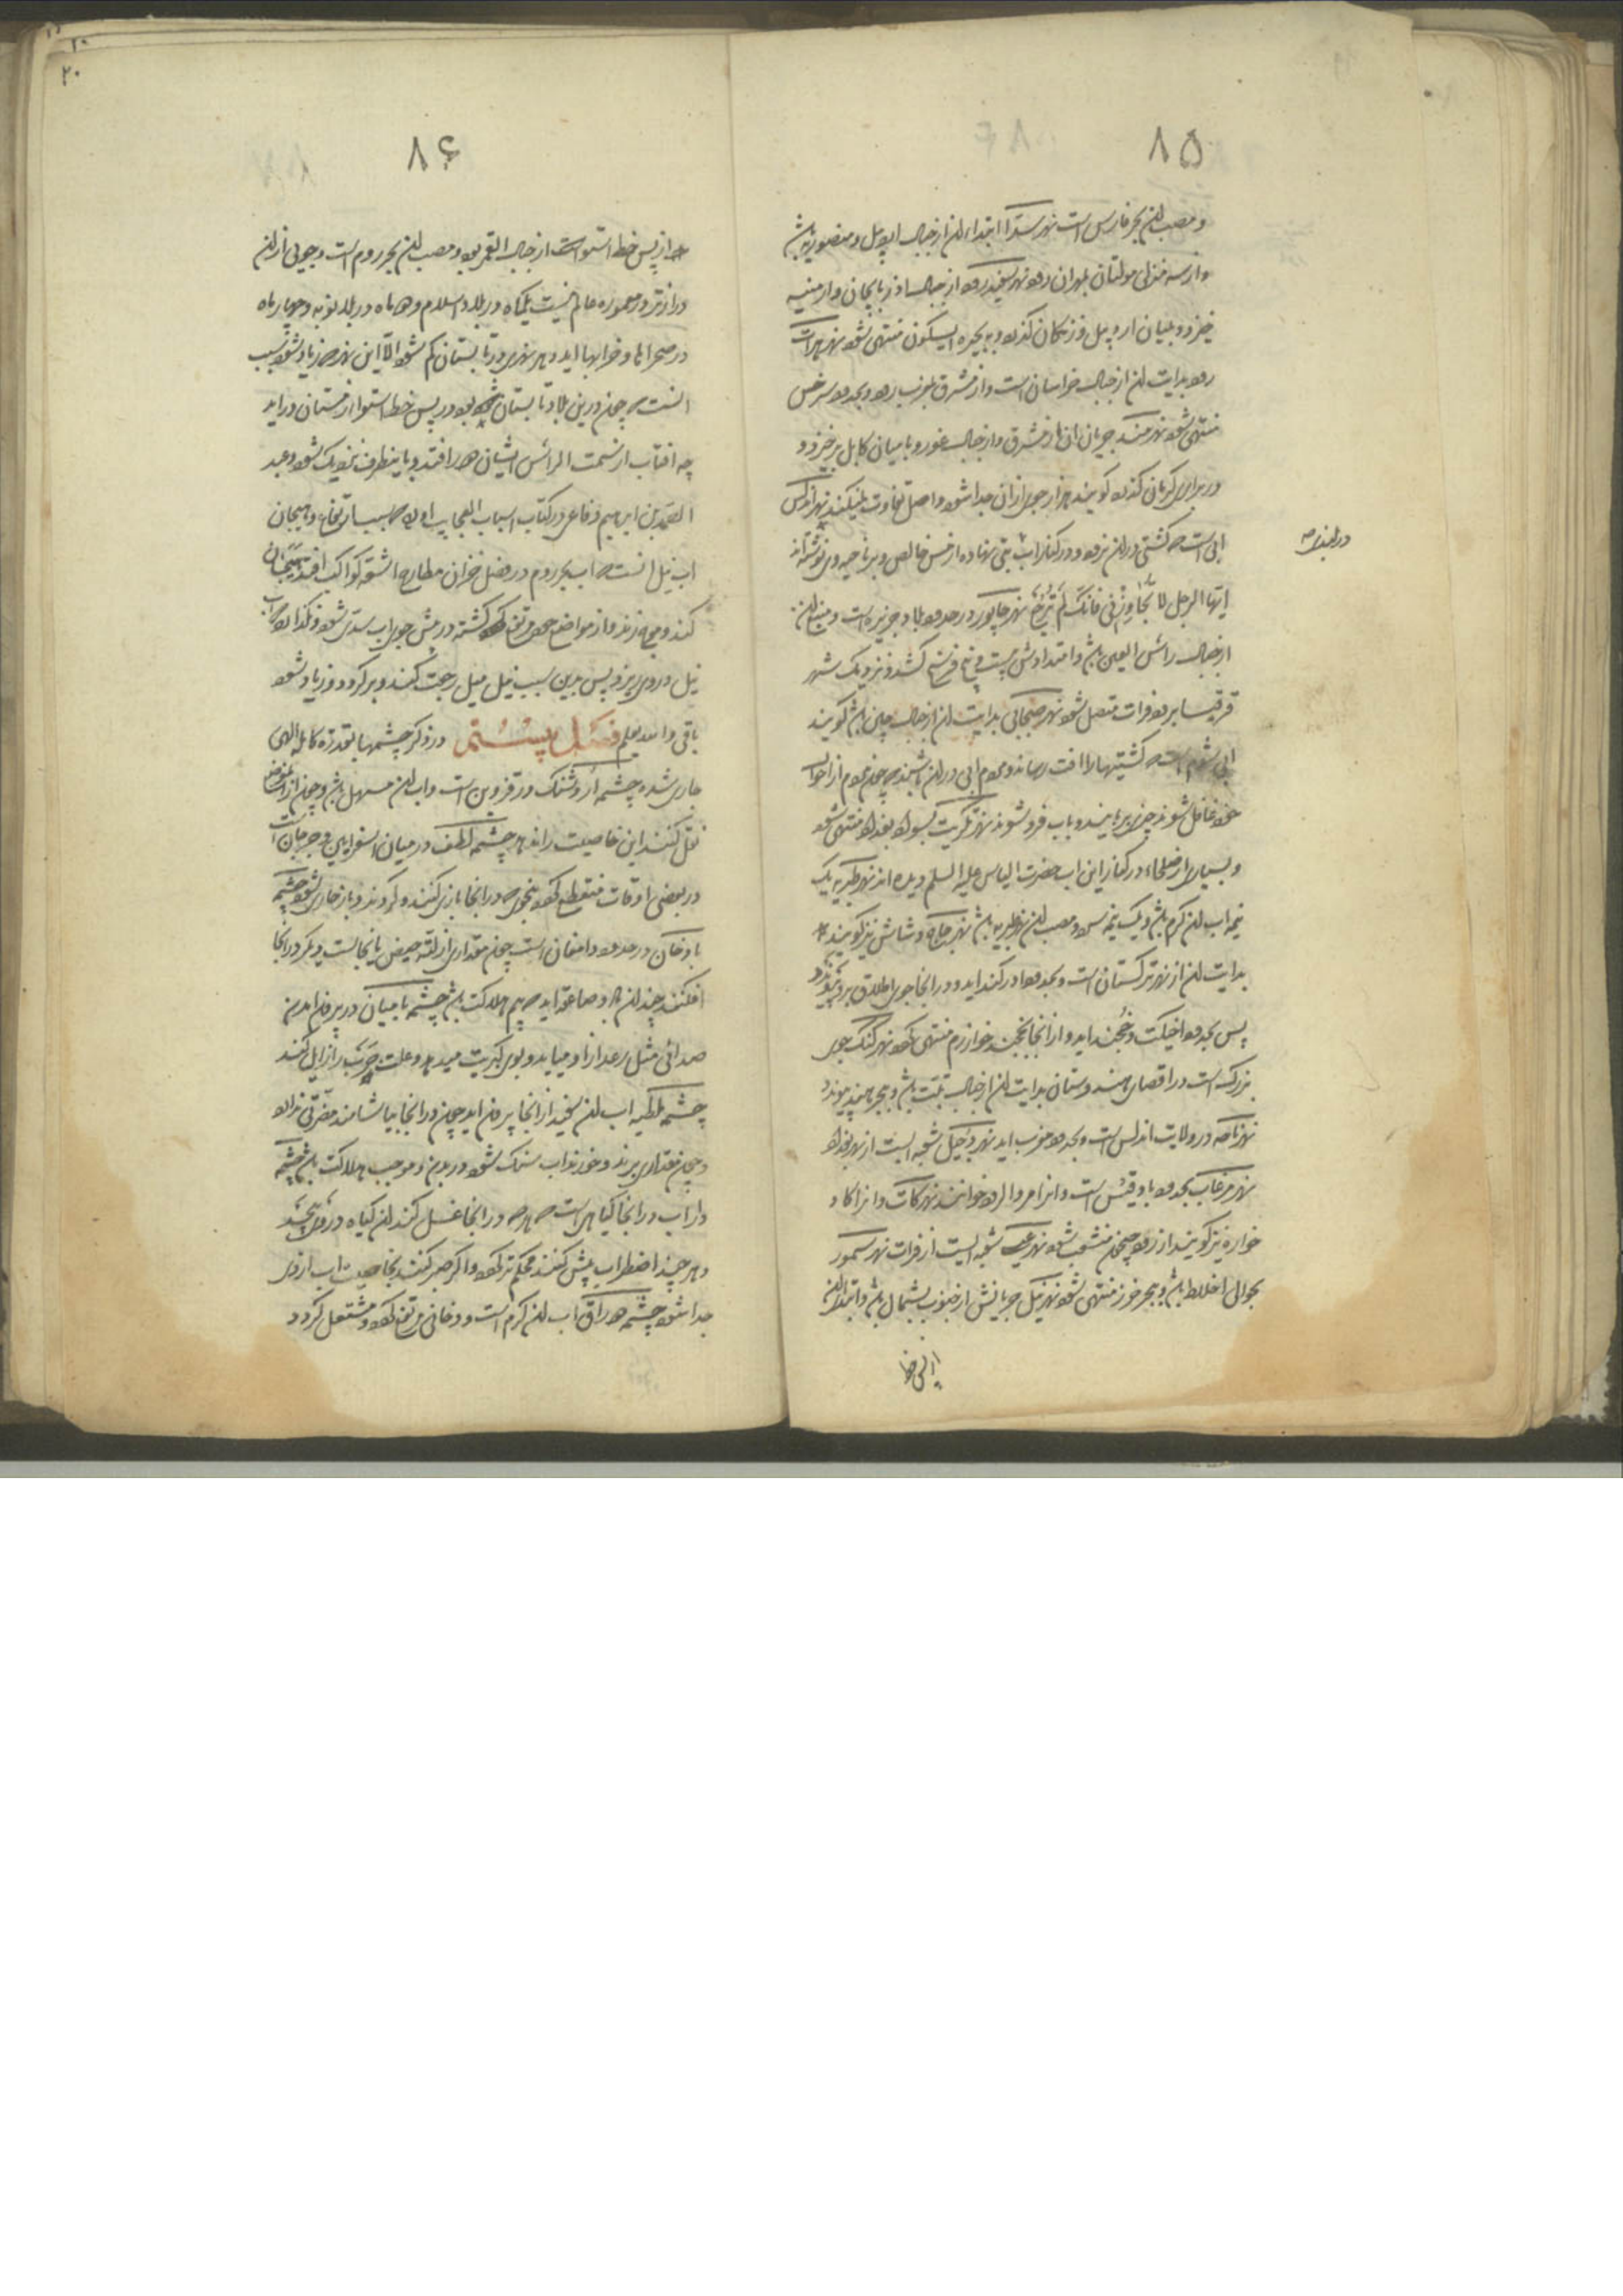 ۸۵
و مصب ان بحر فارس است نهر سند را ابتداء ان از جبال
و از سه منزلی مولتان بمهران رود نهر سفیدرود از جبال اذربایجان و ارمنیه
خیزد و بمیان اردبیل و زنکان کذرد و به بحیره ابسکون منتهی شود نهر هرات
رود بدایت ان از جبال خراسان است و از مشرق بمغرب رود و بحدود سرخس
منتهی شود نهر هرمند جریان ان از مشرق و از جبال غور و بامیان کابل برخیزد و
در برابر کرمان کذرد کویند هزار جوی از ان جدا شود و اصل تفاوت نمیکند نهر اندلس
ابی است که کشتی در ان نرود و در کنار اب بتی نهاده از مس خالص و بر ناحیه وی نوشته‌اند
ایها الرجل لا تجاوزنی فانک لم ترجع نهر خابور در حدود بلاد جزیره است و منبع ان
از جبال راس العین باشد و امتدادش بیست و پنج فرسخ کشد و نزدیک شهر
قرقیسا بر رود فرات متصل شود نهر جیحانی بدایت ان از جبال چین باشد کویند
ابی شوم است که کشتیها را افت رساند و مردم ابی در ان باشند که چون مردم از احوال
خود غافل شوند چیزی بربایند و باب فرو شوند نهر تکریت بسواد بغداد منتهی شود
و بسیاری از صلحاء در کنار این اب حضرت الیاس علیه السلم دیده اند نهر طبریه یک
نیمه اب ان کرم باشد و یک نیمه سرد و مصب ان نهر طبریه باشد نهر چاج و شاش نیز کویند
بدایت ان از نهر ترکستان است و بحدود اورکند اید و در انجا جوی اطلاق برو پیوندد
پس بحدود اخسیکت و خجند اید و از انجا بخجند خوارزم منتهی کردد نهر کنک جوی
بزرک است در اقصای هندوستان بدایت ان از جبال تبت باشد و ببحر هند پیوندد
نهر تاجه در ولایت اندلس است و بحدود مغرب اید نهر دجیل شعبه ایست از نهر بغداد
نهر مرغاب بحدود بادغیس است و انرا مرو الرود خوانند نهر کات و انرا کاو
خواره نیز کویند از رود جیحون منشعب شود نهر عیسی شعبه ایست از فرات نهر سمور
بحوالی اخلاط باشد و ببحر خزر منتهی شود نهر نیل جریانش از جنوب بشمال باشد و ابتداء ان
از پس خط
۸۶
از پس خط استوا است از جبال القمر بود و مصب ان بحر روم است و جویی از ان
درازتر در معموره عالم نیست یکماه در بلاد اسلام و دو ماه در بلاد نوبه و چهار ماه
در صحراها و خرابها اید و هر نهری در تابستان کم شود الا این نهر که زیاد شود سبب
انست که چون درین بلاد تابستان بود در پس خط استوا زمستان در اید
چه افتاب از سمت الراس ایشان دور افتد و باینطرف نزدیک شود و عبد
الصمد بن ابرهیم رفاعی در کتاب اسباب العجایب اورده که سبب ارتفاع و هیجان
اب نیل انست که اب بحر روم در فصل خزان مطارح اشعه کواکب افتد هیجان
کند و موج زند و از مواضع خود مرتفع کشته در پیش جوی اب سدی شود و نکذارد که اب
نیل در وی ریزد پس بدین سبب نیل میل رجعت کند و برکردد و زیاد شود
باقی والله اعلم فصل بیستم در ذکر چشمها بقدرة کامله الهی
جاری شده چشمه اروشنک در قزوین است و اب ان مسهل باشد و چون از ان موضع
نقل کنند این خاصیت را ندهد چشمه الطف در میان اسفراین و جرجان است
در بعضی اوقات منقطع کردد بنحوی که در انجا بازی کنند و کردند و باز جاری شود چشمه
بادخان در حدود دامغان است چون مقداری از لته حیض یا نجاست دیکر در انجا
افکنند چندان باد و صاعقه اید که بیم هلاکت باشد چشمه بامیان در بیرون امدن
صدائی مثل رعد از او میاید و بوی کبریت میدهد و علت جرب را زایل کند
چشمه ملطیه اب ان سفید از انجا بیرون اید چون در انجا بیاشامند مضرتی ندارد
و چون مقداری برند و خورند اب سنک شود در بدن و موجب هلاکت باشد چشمه
داراب در انجا کیاهی است که هر که در انجا غسل کند ان کیاه در وی پیچد
و هر چند اضطراب بیش کنند محکم تر کردد و اکر صبر کنند بخاصیت اب از وی
جدا شود چشمه دوراق اب ان کرم است و دخانی مرتفع کردد و مشتعل کردد